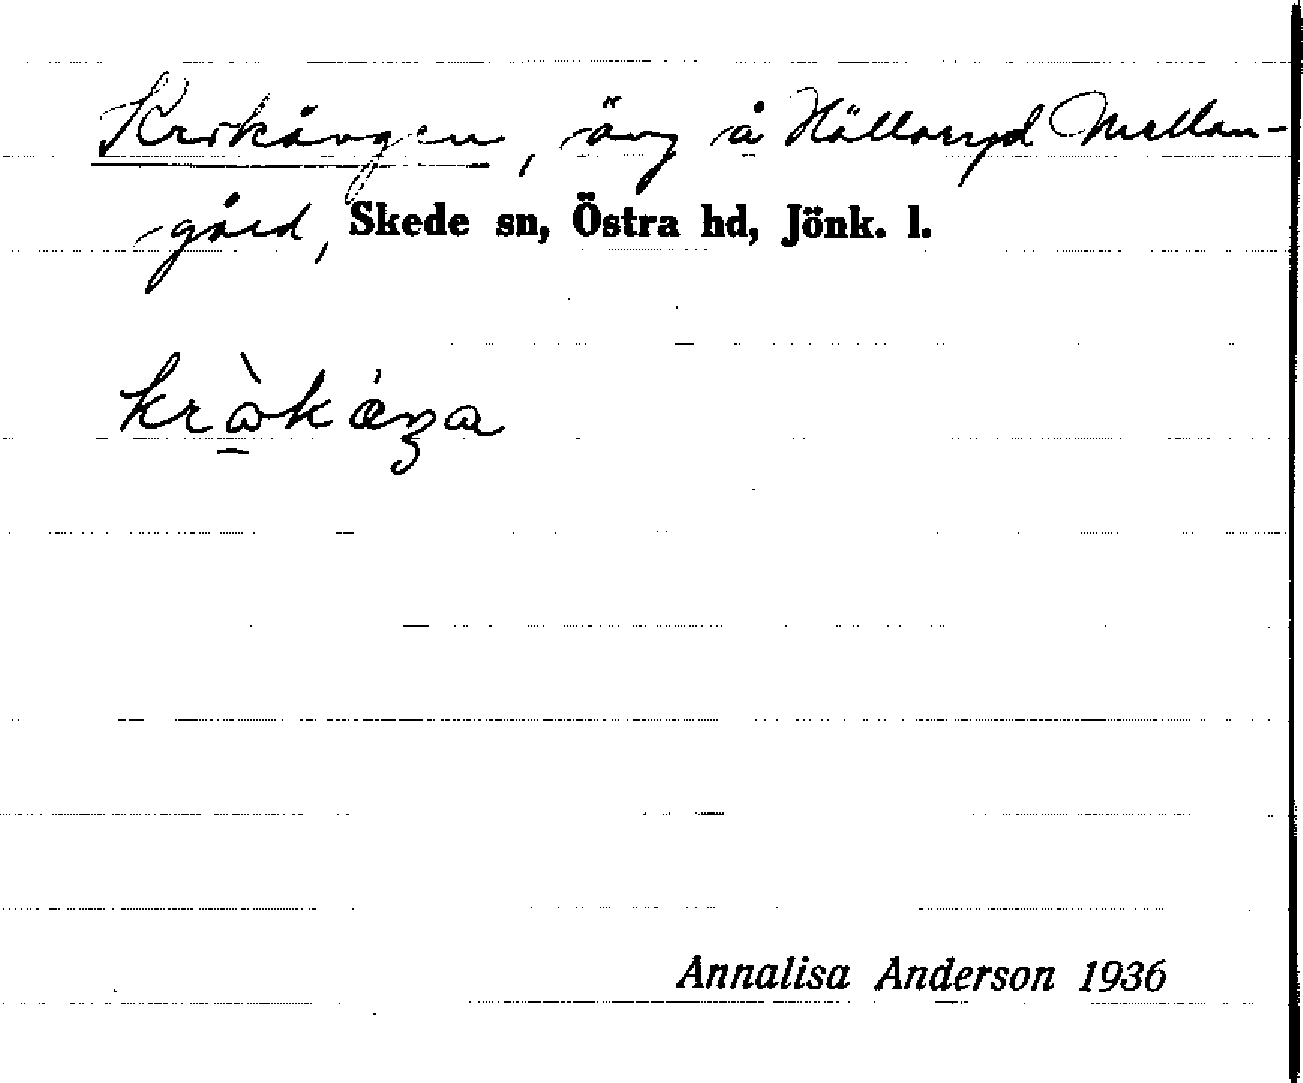 Krokängen, äng å Hälleryd Mellan-
gård, Skede sn, Östra hd, Jönk. l.
kròkáŋa
Annalisa Anderson 1936